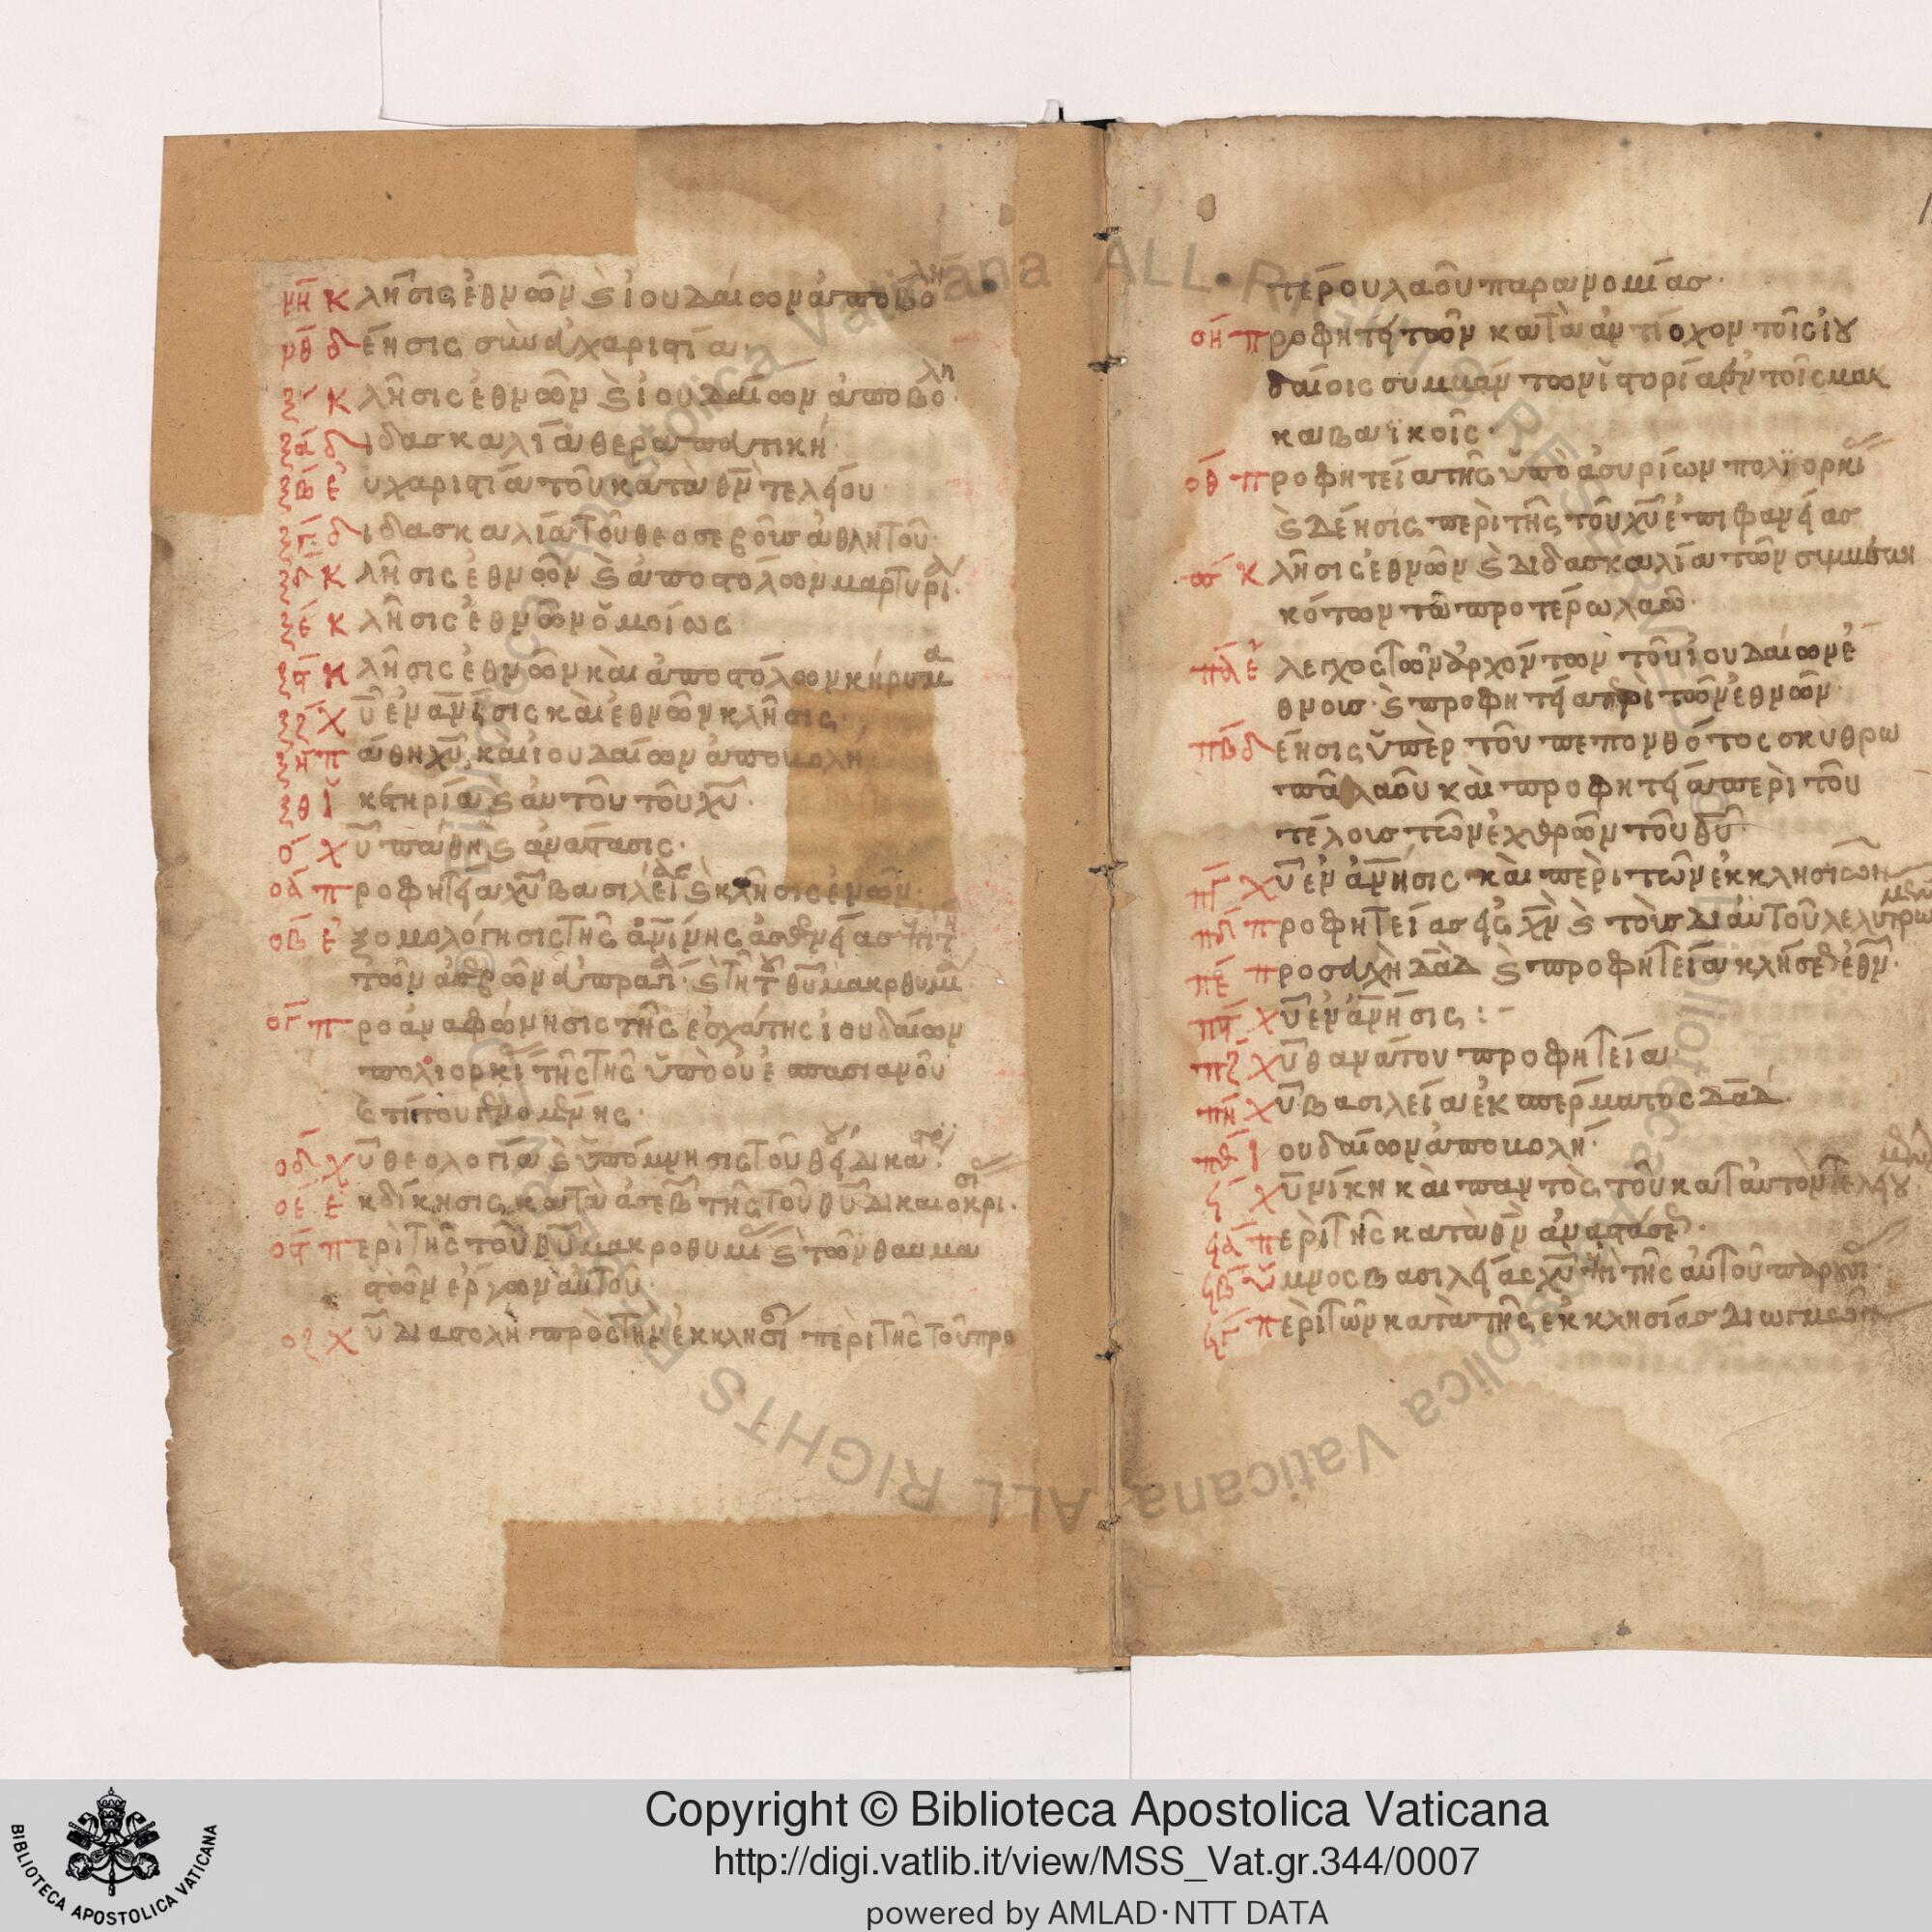 νη κλῆσις ἐθνῶν ϗ ἰουδαίων ἀποβολη
νθ δέησις σὺν εὐχαριστία
ξ κλῆσις ἐθνῶν ϗ ἰουδαίων ἀποβολη
ξα διδασκαλία θεραπευτική
ξβ εὐχαριστία τοῦ κατὰ θν τελείου
ξγ διδασκαλία τοῦ θεοσεβοῦσ ἀθλητοῦ
ξδ κλῆσις ἐθνῶν ϗ ἀποστόλων μαρτυρι
ξε κλῆσις ἐθνῶν ὁμοίως
ξϛ κλῆσις ἐθνῶν καὶ ἀποστόλων κήρυγμα
ξζ χυ ἐνανησις καὶ ἐθνῶν κλῆσις
ξη πάθη χυ καὶ ἰουδαίων ἀποβολη
ξθ ἱκετηρία ϗ αὐτοῦ τοῦ χυ
ο χυ πάθη ϗ ἀνάστασις
οα προφητεία χυ βασιλείας ϗ κλῆσις ἐθνῶν
οβ ἐξομολόγησις τῆς ἀνίνης ἀσθενείας
τῶν ἀσεβῶν
ογ προαναφώνησις τῆς ἐσχάτης ἰουδαίων
πολιορκί τῆς τῆς ὑπὸ οὐεσπασιανοῦ
ϗ τίτου γενομένης
οδ χυ θεολογία ϗ ὑπόμνησις τοῦ θείου δικαι
οε ἐκδίκησις κατὰ ἀσεβ τῆς τοῦ θυ δικαιοκρισι
οϛ περὶ τῆς τοῦ θυ μακροθυμι ϗ τῶν θαυμα
στῶν ἔργων αὐτοῦ
οζ χυ διαστολὴ πρὸς τὴν ἐκκλησί περὶ τῆς τοῦ προ
τέρου λαοῦ παρανομίασ
οη προφητεία τῶν κατὰ ἀντίοχον τοῖς ἰου
δαίοις συμβάντων ἱστορία ἐν τοῖς μακ
καβαϊκοῖς
οθ προφητεία τῆς ὑπὸ ἀσυρίων πολιορκί
ϗ δέησις περὶ τῆς τοῦ χυ ἐπιφανείασ
π κλῆσις ἐθνῶν ϗ διδασκαλία τῶν συμβεβη
κότων τῶ προτέρω λαῶ
πα ἔλεγχος τῶν ἀρχόντων τοῦ ἰουδαίων ἔ
θνουσ ϗ προφητεία περὶ τῶν ἐθνῶν
πβ δέησις ὑπὲρ τοῦ πεπονθότος σκυθρω
πὰ λαοῦ καὶ προφητεία περὶ τοῦ
τέλουσ τῶν ἐχθρῶν τοῦ θυ
πγ χυ ἐνανησις καὶ περὶ τῶν ἐκκλησιῶν
πδ προφητείασ εἰς χν ϗ τοὺσ δι αὐτοῦ λελυτρωμένους
πε προσευχὴ δαδ ϗ προφητεία κλήσεως ἐθν
πϛ χυ ἐνανησις
πζ χυ θανάτου προφητεία
πη χυ βασιλεία ἐκ σπέρματος δαδ
πθ ἰουδαίων ἀποβολή
ϟ χυ νίκη καὶ παντὸς τοῦ κατ αὐτὸν τελείου
ϟα περὶ τῆς κατὰ θν ἀναπαύσεως
ϟβ ὕμνος βασιλείας χυ ἐπὶ τῆς αὐτοῦ παρουσι
ϟγ περὶ τῶν κατὰ τῆς ἐκκλησίασ διωγμῶν
Copyright © Biblioteca Apostolica Vaticana
http://digi.vatlib.it/view/MSS_Vat.gr.344/0007
powered by AMLAD·NTT DATA
BIBLIOTECA APOSTOLICA VATICANA